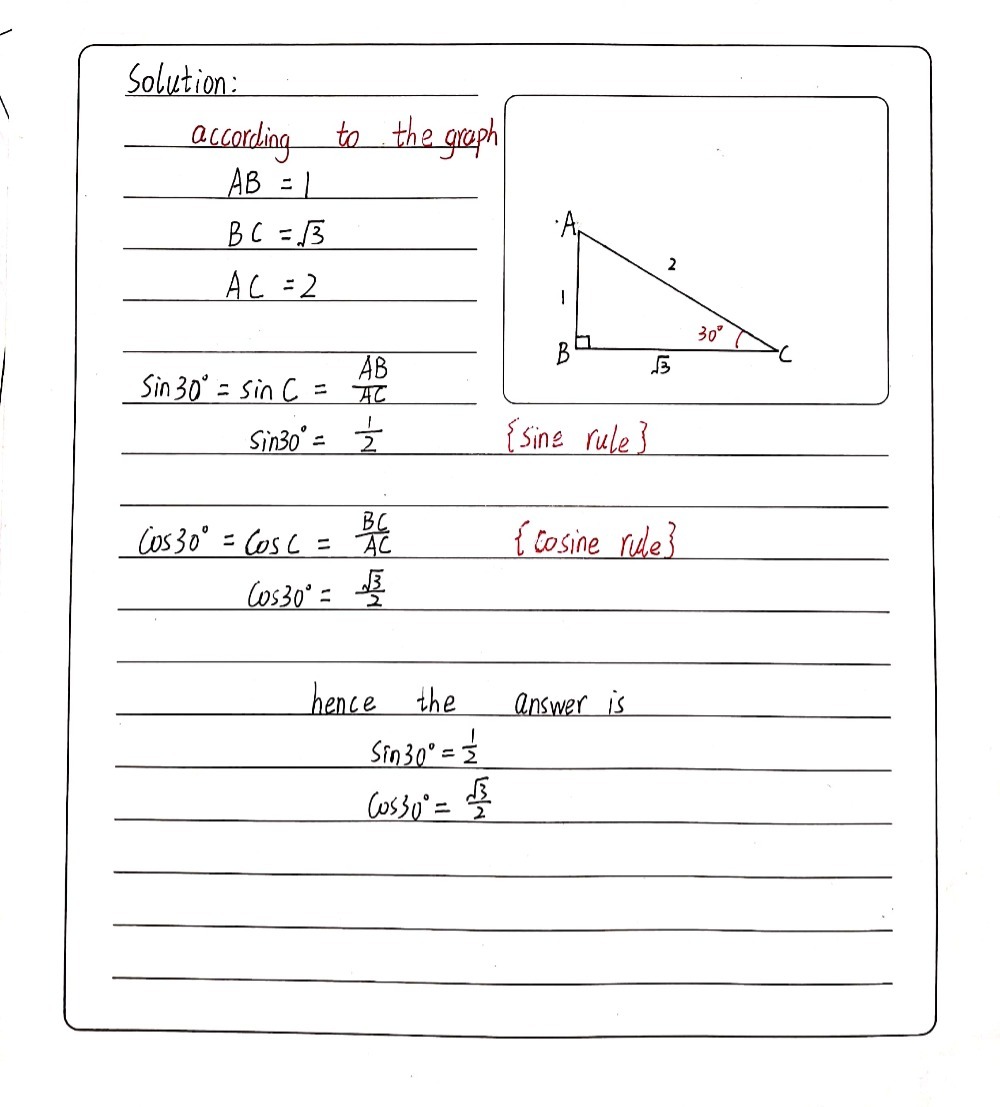 Solution:
according to the graph
AB = 1
BC = √3
AC = 2
A
2
1
30°
B
√3
C
Sin30° = sin C = AB/AC
Sin30° = 1/2 {sine rule}
Cos30° = Cos C = BC/AC {Cosine rule}
Cos30° = √3/2
hence the answer is
Sin30° = 1/2
Cos30° = √3/2